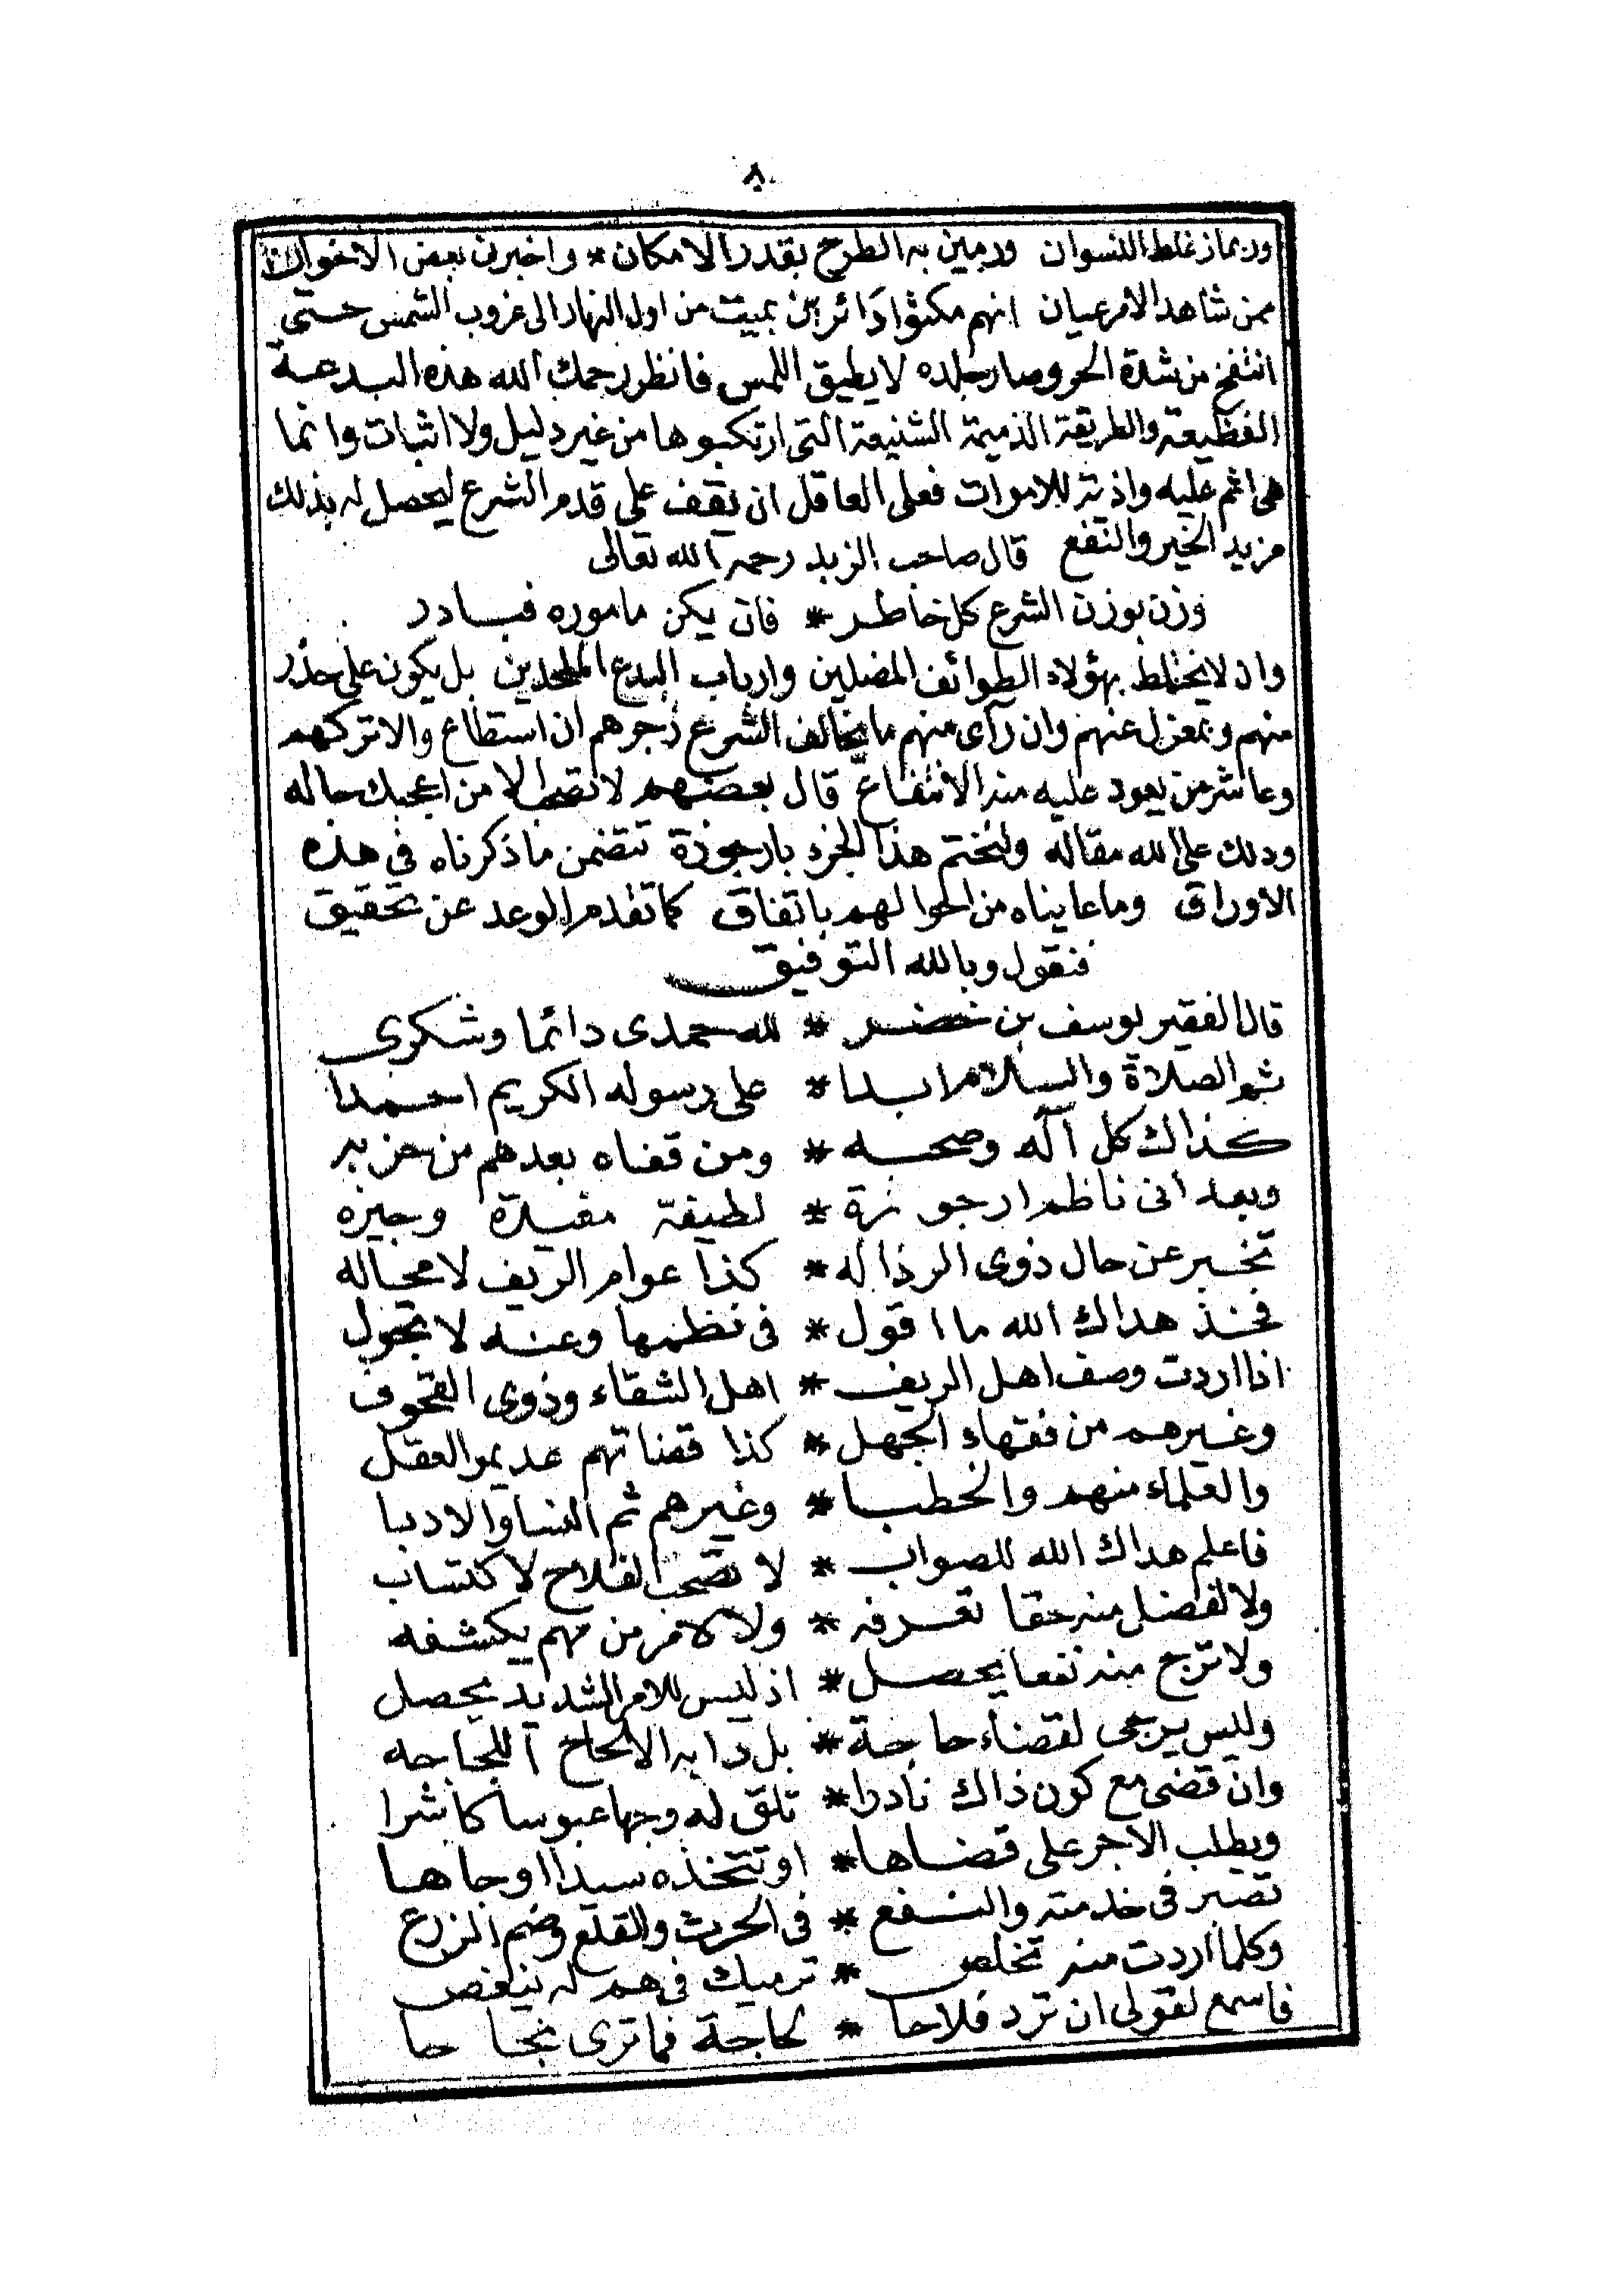 ٨٠
وربما زغلط النسوان ورمين به الطرح بقدر الامكان * واخبرنى بعض الاخوان
ممن شاهد الامر عيان انهم مكثوا دائرين بميت من اول النهار الى غروب الشمس حتى
انتفخ من شدة الحر وصار جلده لا يطيق اللمس فانظر رحمك الله هذه البدعة
الفظيعة والطريقة الذميمة الشنيعة التى ارتكبوها من غير دليل ولا اثبات وانما
هى اثم عليه واذية للاموات فعلى العاقل ان يقف على قدم الشرع ليحصل له بذلك
مزيد الخير والنفع قال صاحب الزبد رحمه الله تعالى
وزن بوزن الشرع كل خاطر * فان يكن ماموره فبادر
وان لا يختلط بهؤلاء الطوائف المضلين وارباب البدع الملحدين بل يكون على حذر
منهم وبمعزل عنهم وان رآى منهم ما يخالف الشرع زجرهم ان استطاع والا تركهم
وعاشر من يعود عليه منه الانتفاع قال بعضهم لا تصحب الا من اعجبك حاله
ودلك على الله مقاله ولنختم هذا الجزء بارجوزة تتضمن ما ذكرناه فى هذه
الاوراق وما عايناه من احوالهم باتفاق كما تقدم الوعد عن تحقيق
فنقول وبالله التوفيق
قال الفقير يوسف بن خضر * لله حمدى دائما وشكرى
ثم الصلاة والسلام ابدا * على رسوله الكريم احمدا
كذاك كل آله وصحبه * ومن قفاه بعدهم من حزبه
وبعد انى ناظم ارجوزة * لطيفة مفيدة وجيزه
تخبر عن حال ذوى الرذاله * كذا عوام الريف لا محاله
فخذ هداك الله ما اقول * فى نظمها وعنه لا تحول
اذا اردت وصف اهل الريف * اهل الشقاء وذوى القحوف
وغيرهم من فقهاء الجهل * كذا قضاتهم عديمو العقل
والعلماء منهم والخطبا * وغيرهم ثم النسا والادبا
فاعلم هداك الله للصواب * لا تصحب الفلاح لاكتساب
ولا لفضل منه حقا تعرفه * ولا لامر من مهم يكشفه
ولا ترج منه نفعا يحصل * اذ ليس للامر الشديد يحصل
وليس يرجى لقضاء حاجة * بل دابه الالحاح اللجاجه
وان قضى مع كون ذاك نادرا * تلق له وجها عبوسا كاشرا
ويطلب الاجر على قضاها * او تتخذه سيدا او جاها
تصير فى خدمته والنفع * فى الحرث والقلع وضم الزرع
وكلما اردت منه تخلص * ترميك فى هم له ينغص
فاسمع لقولى ان ترد فلاحا * لحاجة فما ترى نجاحا